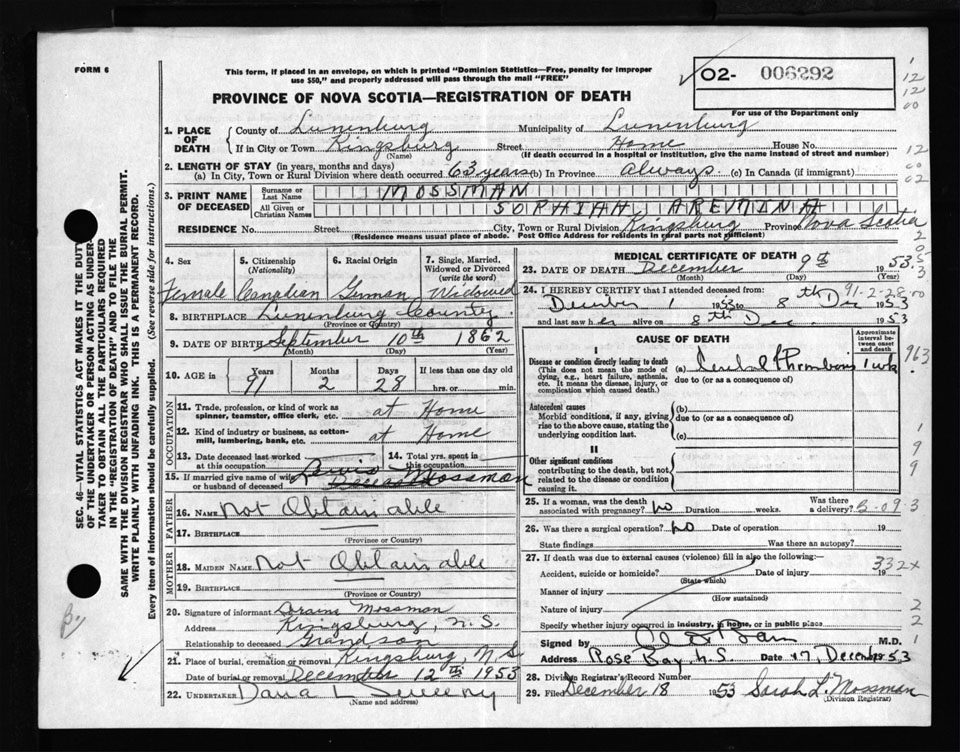 FORM 6
This form, if placed in an envelope, on which is printed "Dominion Statistics—Free, penalty for improper
use $50," and properly addressed will pass through the mail "FREE"
O2- 006292
For use of the Department only
PROVINCE OF NOVA SCOTIA—REGISTRATION OF DEATH
1. PLACE OF DEATH County of Lunenburg Municipality of Lunenburg
If in City or Town Kingsburg Street Home House No.
(Name) (If death occurred in a hospital or institution, give the name instead of street and number)
2. LENGTH OF STAY (in years, months and days)
(a) In City, Town or Rural Division where death occurred 63 years (b) In Province always. (c) In Canada (if immigrant)
3. PRINT NAME OF DECEASED Surname or Last Name MOSSMAN
All Given or Christian Names SOPHIAH AREMINA
RESIDENCE No. Street City, Town or Rural Division Kingsburg Province Nova Scotia
(Residence means usual place of abode. Post Office Address for residents in rural parts not sufficient)
SEC. 46—VITAL STATISTICS ACT MAKES IT THE DUTY
OF THE UNDERTAKER OR PERSON ACTING AS UNDER-
TAKER TO OBTAIN ALL THE PARTICULARS REQUIRED
IN THE "REGISTRATION OF DEATH" AND TO FILE THE
SAME WITH THE DIVISION REGISTRAR WHO SHALL ISSUE THE BURIAL PERMIT.
WRITE PLAINLY WITH UNFADING INK. THIS IS A PERMANENT RECORD.
Every item of information should be carefully supplied. (See reverse side for instructions.)
4. Sex 5. Citizenship (Nationality) 6. Racial Origin 7. Single, Married, Widowed or Divorced (write the word)
Female Canadian German Widowed
8. BIRTHPLACE Lunenburg County
(Province or Country)
9. DATE OF BIRTH September 10th 1862
(Month) (Day) (Year)
10. AGE in Years Months Days If less than one day
91 2 28 hrs. or min.
OCCUPATION
11. Trade, profession, or kind of work as spinner, teamster, office clerk, etc. at Home
12. Kind of industry or business, as cotton-mill, lumbering, bank, etc. at Home
13. Date deceased last worked at this occupation 14. Total yrs. spent in this occupation
15. If married give name of wife or husband of deceased Lewis Mossman
FATHER
16. NAME Not Obtainable
17. BIRTHPLACE
(Province or Country)
MOTHER
18. MAIDEN NAME Not Obtainable
19. BIRTHPLACE
(Province or Country)
20. Signature of informant Mossman
Address Kingsburg, N.S.
Relationship to deceased Grandson
21. Place of burial, cremation or removal Kingsburg, N.S.
Date of burial or removal December 12th 1953
22. UNDERTAKER Dana L Sweeny
(Name and address)
MEDICAL CERTIFICATE OF DEATH
23. DATE OF DEATH December 9th 1953
24. I HEREBY CERTIFY that I attended deceased from: 91-2-28
December 1 1953 to 8th Dec 1953
and last saw her alive on 8th Dec. 1953
CAUSE OF DEATH Approximate interval between onset and death
I
Disease or condition directly leading to death
(This does not mean the mode of dying, e.g., heart failure, asthenia, etc. It means the disease, injury, or complication which caused death.)
(a) Cerebral Thrombosis 1 wk
due to (or as a consequence of)
Antecedent causes
Morbid conditions, if any, giving rise to the above cause, stating the underlying condition last.
(b)
due to (or as a consequence of)
(c)
II
Other significant conditions
contributing to the death, but not related to the disease or condition causing it.
25. If a woman, was the death associated with pregnancy? No Duration weeks. Was there a delivery?
26. Was there a surgical operation? No Date of operation 19
State findings Was there an autopsy?
27. If death was due to external causes (violence) fill in also the following:
Accident, suicide or homicide? Date of injury 19
(State which)
332X
Manner of injury
(How sustained)
Nature of injury
Specify whether injury occurred in industry, in home, or in public place
Signed by M.D.
Address Rose Bay N.S. Date 17, December 53
28. Division Registrar's Record Number
29. Filed December 18 1953 Sarah L. Mossman
(Division Registrar)